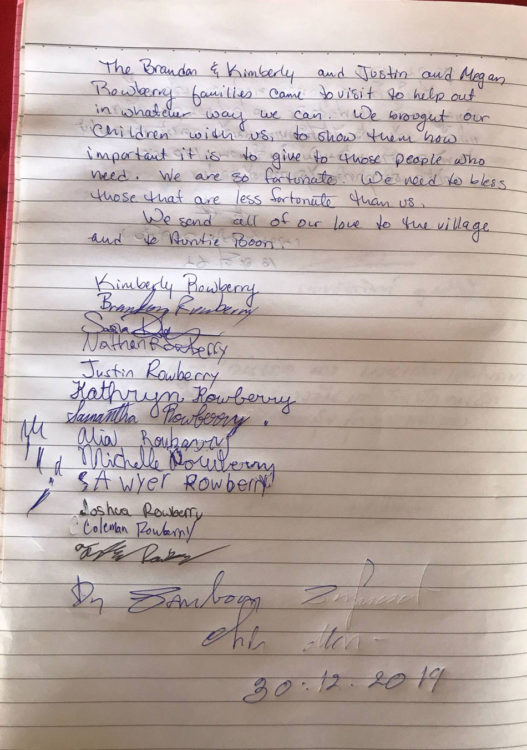 The Brandon & Kimberly and Justin and Megan
Rowberry families came to visit to help out
in whatever way we can. We brought our
children with us, to show them how
important it is to give to those people who
need. We are so fortunate. We need to bless
those that are less fortunate than us.
We send all of our love to the village
and to Auntie Boon.
Kimberly Rowberry
Brandon Rowberry
Nathen Rowberry
Justin Rowberry
Kathryn Rowberry
Samantha Rowberry.
Michelle Rowberry
SAwyer Rowberry
Joshua Rowberry
Coleman Rowberry
30.12.2019